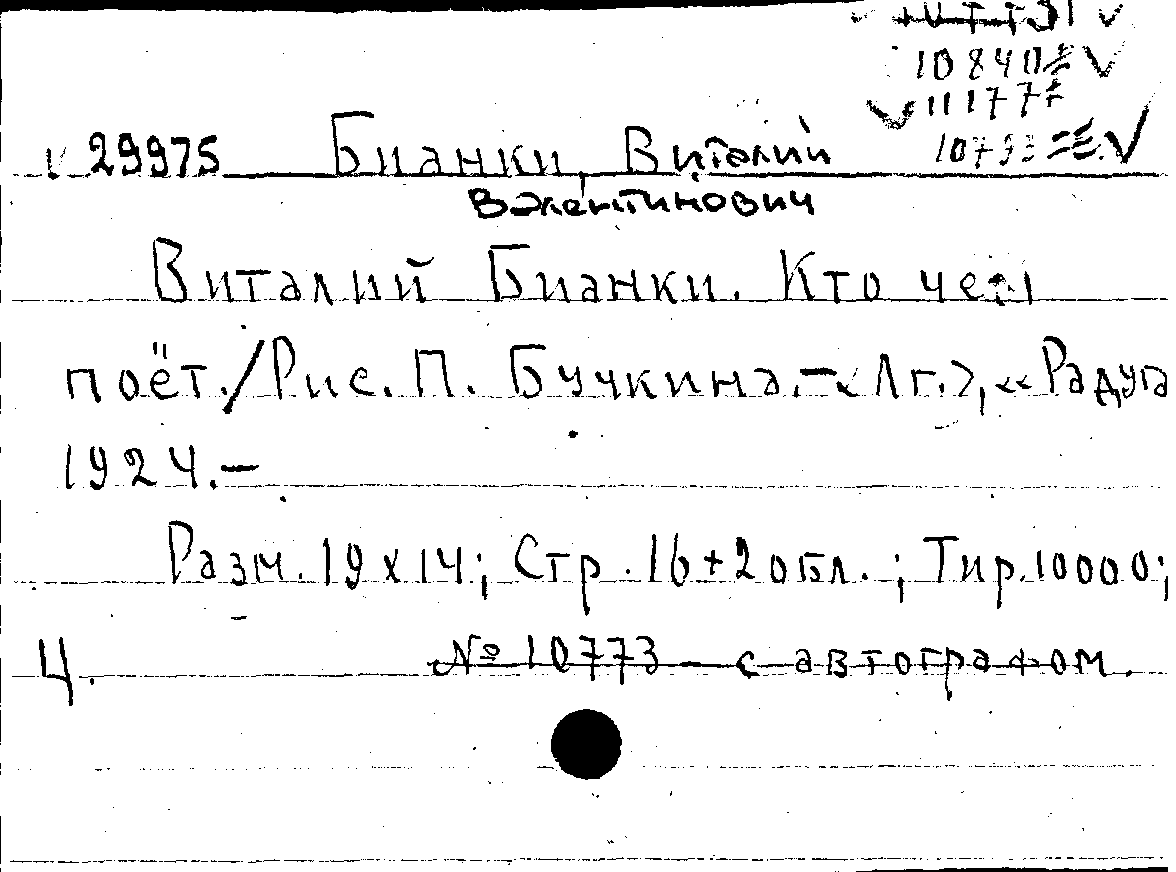 10840
11177
29975 Бианки, Виталий
Валентинович
Виталий Бианки. Кто чем
поёт./Рис. П. Бучкина.-<Лг.>, «Радуга
1924.-
Разм. 19х14; Стр. 16+2 обл.; Тир. 10000;
Ц. № 10773 – с автографом.